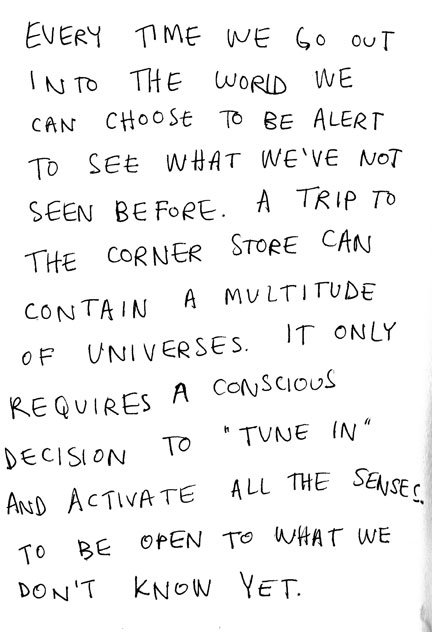 EVERY TIME WE GO OUT
INTO THE WORLD WE
CAN CHOOSE TO BE ALERT
TO SEE WHAT WE'VE NOT
SEEN BEFORE. A TRIP TO
THE CORNER STORE CAN
CONTAIN A MULTITUDE
OF UNIVERSES. IT ONLY
REQUIRES A CONSCIOUS
DECISION TO "TUNE IN"
AND ACTIVATE ALL THE SENSES.
TO BE OPEN TO WHAT WE
DON'T KNOW YET.